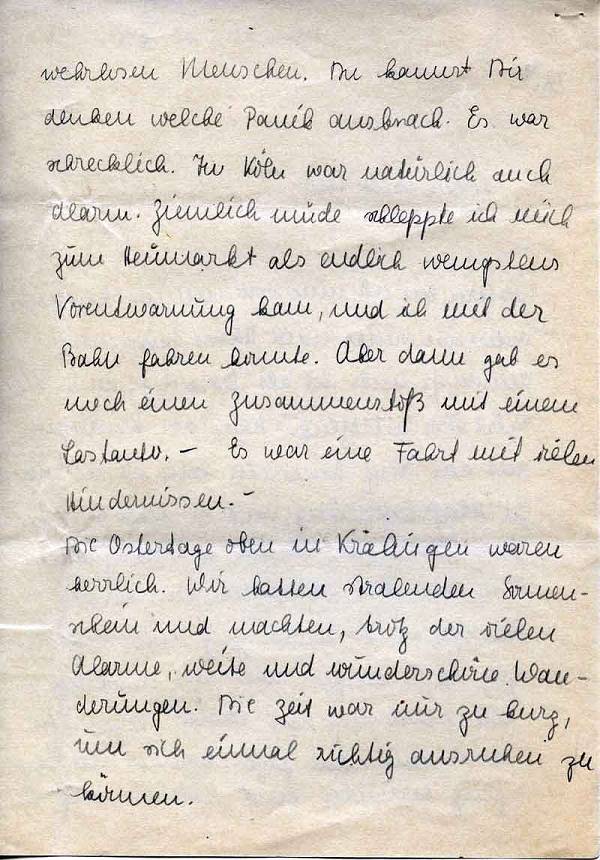 wehrlosen Menschen. Du kannst Dir
denken welche Panik ausbrach. Es war
schrecklich. In Köln war natürlich auch
Alarm. Ziemlich müde schleppte ich mich
zum Heumarkt als endlich wenigstens
Vorentwarnung kam, und ich mit der
Bahn fahren konnte. Aber dann gab es
noch einen Zusammenstoß mit einem
Lastauto. – Es war eine Fahrt mit vielen
Hindernissen. –
Die Ostertage oben in Kräh­ingen waren
herrlich. Wir hatten stralenden Sonnen-
schein und machten, trotz der vielen
Alarme, weite und wunderschöne Wan-
derungen. Die Zeit war nur zu kurz,
um sich einmal richtig ausruhen zu
können.